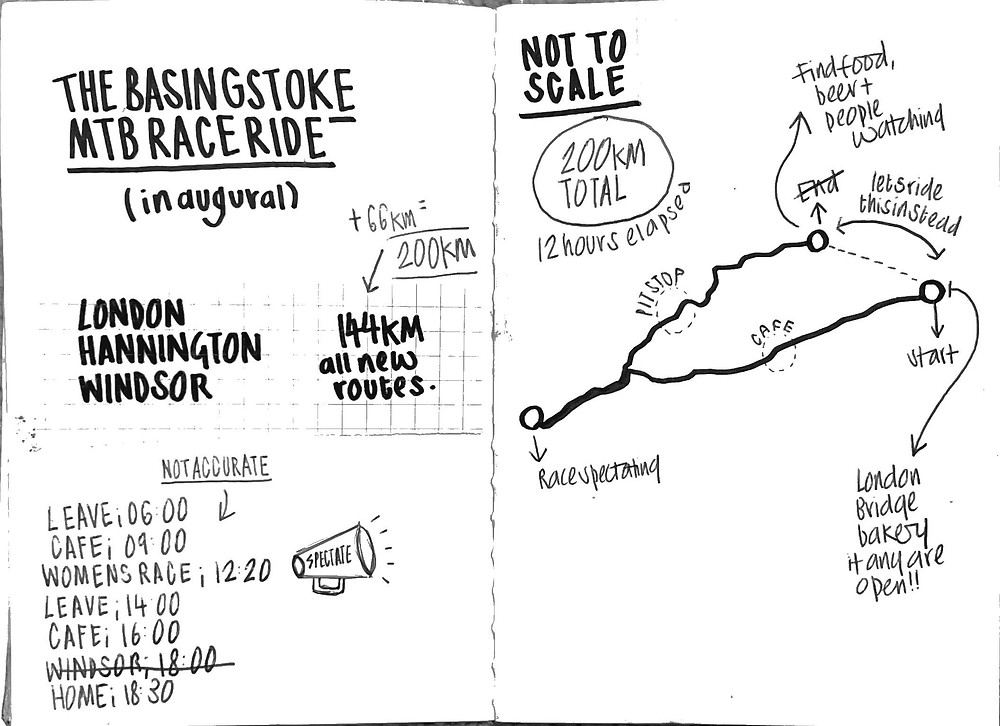 THE BASINGSTOKE
MTB RACE RIDE
(inaugural)
+66km =
200KM
LONDON
HANNINGTON
WINDSOR
144KM
all new
routes.
NOT ACCURATE
LEAVE; 06:00
CAFE; 09:00
WOMENS RACE; 12:20
LEAVE; 14:00
CAFE; 16:00
WINDSOR; 18:00
HOME; 18:30
SPECTATE
NOT TO
SCALE
200KM
TOTAL
12 hours elapsed
Find food,
beer +
people
watching
End
lets ride
this instead
PIT STOP
CAFE
start
Race spectating
London
Bridge
bakery
if any are
open!!